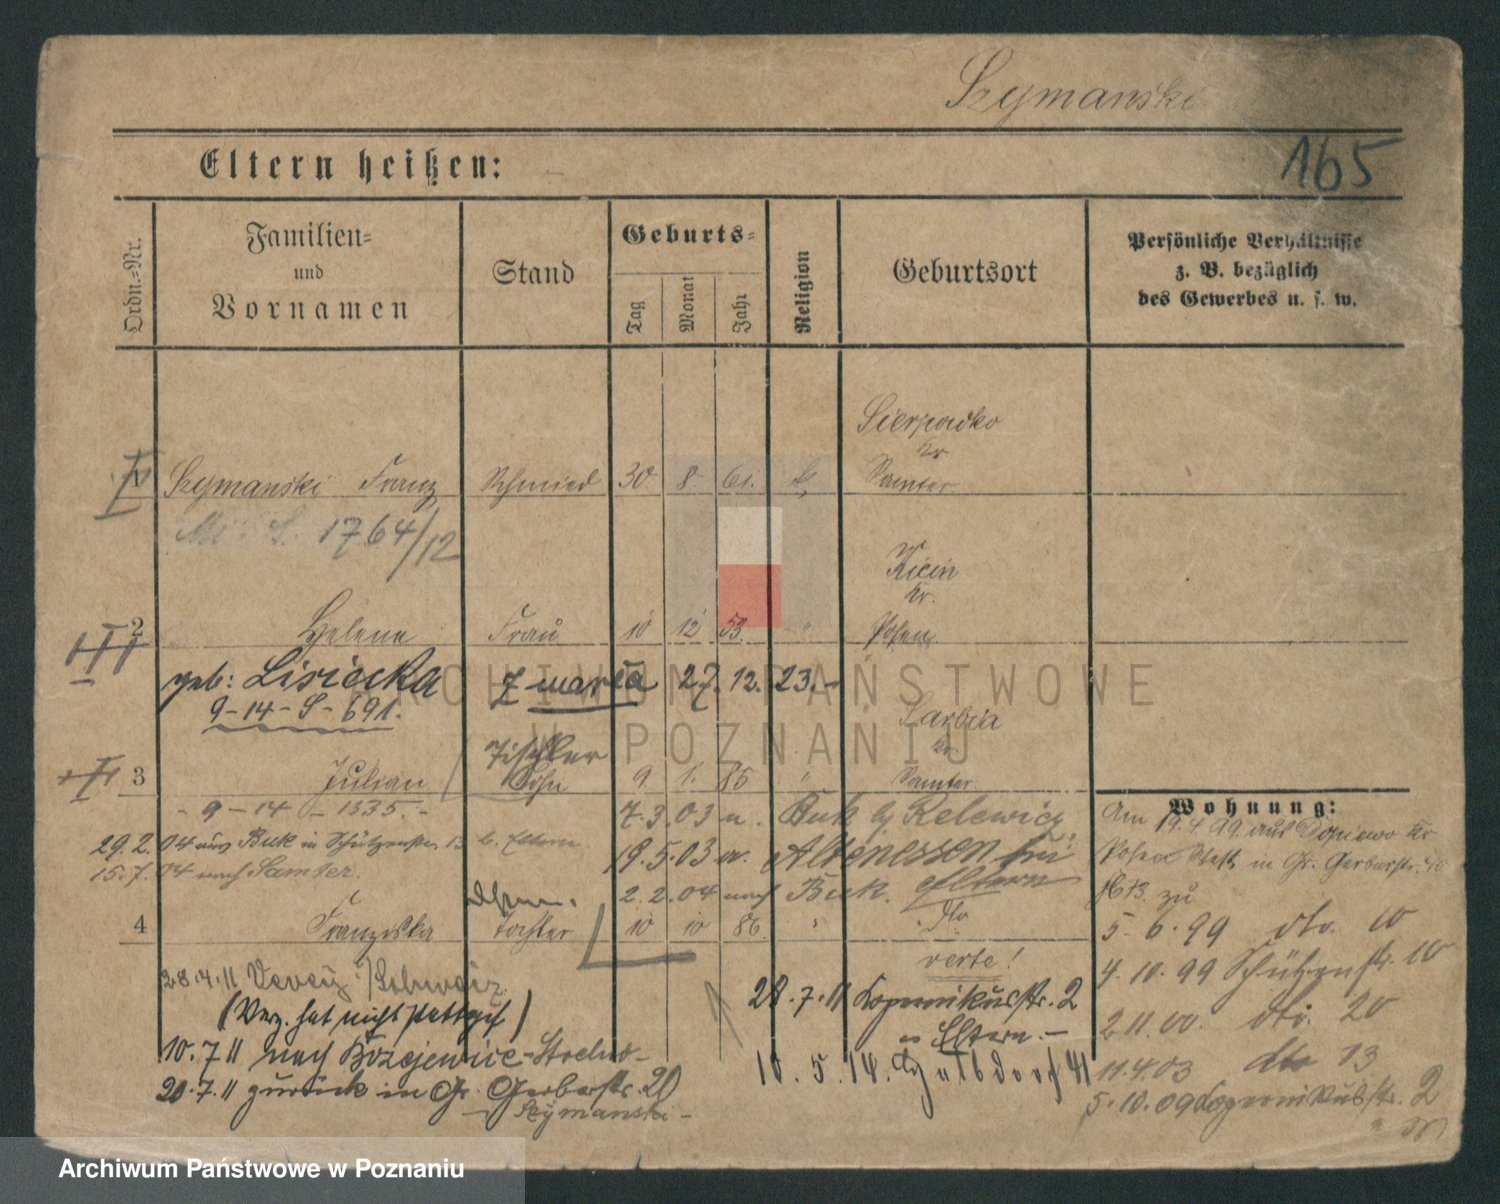 Szymanski
165
Eltern heißen:
Ordn.-Nr.
Familien-
und
Vornamen
Stand
Geburts-
Tag
Monat
Jahr
Religion
Geburtsort
Persönliche Verhältnisse
z. B. bezüglich
des Gewerbes u. s. w.
Sierpowko
Kr
1 Szymanski Franz Schmied 30 8 61. k. Samter
1764/12
Kicin
Kr.
2 Helene Frau 10 12 53. " Posen
geb: Lisiecka maria 27. 12. 23.-
9-14-S-691.
Tischler
Kr.
3 Julian Sohn 9 1. 85 " Samter
- 9 - 14 - 1335. -
7.3.03 u. Buk bj Kelewicz
29.2. 04 aus Buk in Schützenstr. 13 b. Eltern
19.5.03 Altenessen bei
15.7. 04 nach Samter.
2.2.04 nach Buk. Eltern
4 Franziska Tochter 10 10 86 " dto
verte!
28.4.11 Vevey /Schweiz
(Verz. hat nicht stattgef)
10.7.11 nach
20.7.11 zurück in Gr. Gerberstr. 20
- Szymanski -
28.7.11 Kopernikusstr. 2
Eltern. -
10.5.14. 41
Wohnung:
Am 19.4.99. aus Dopiewo Kr
Posen West in Gr. Gerberstr. 40
zu
5.6.99 dto. 10
4.10.99 Schützenstr. 10
2.11.00. dto. 20
11.4.03 dto 13
5.10.09 Kopernikusstr. 2
ARCHIWUM PAŃSTWOWE
W POZNANIU
Archiwum Państwowe w Poznaniu